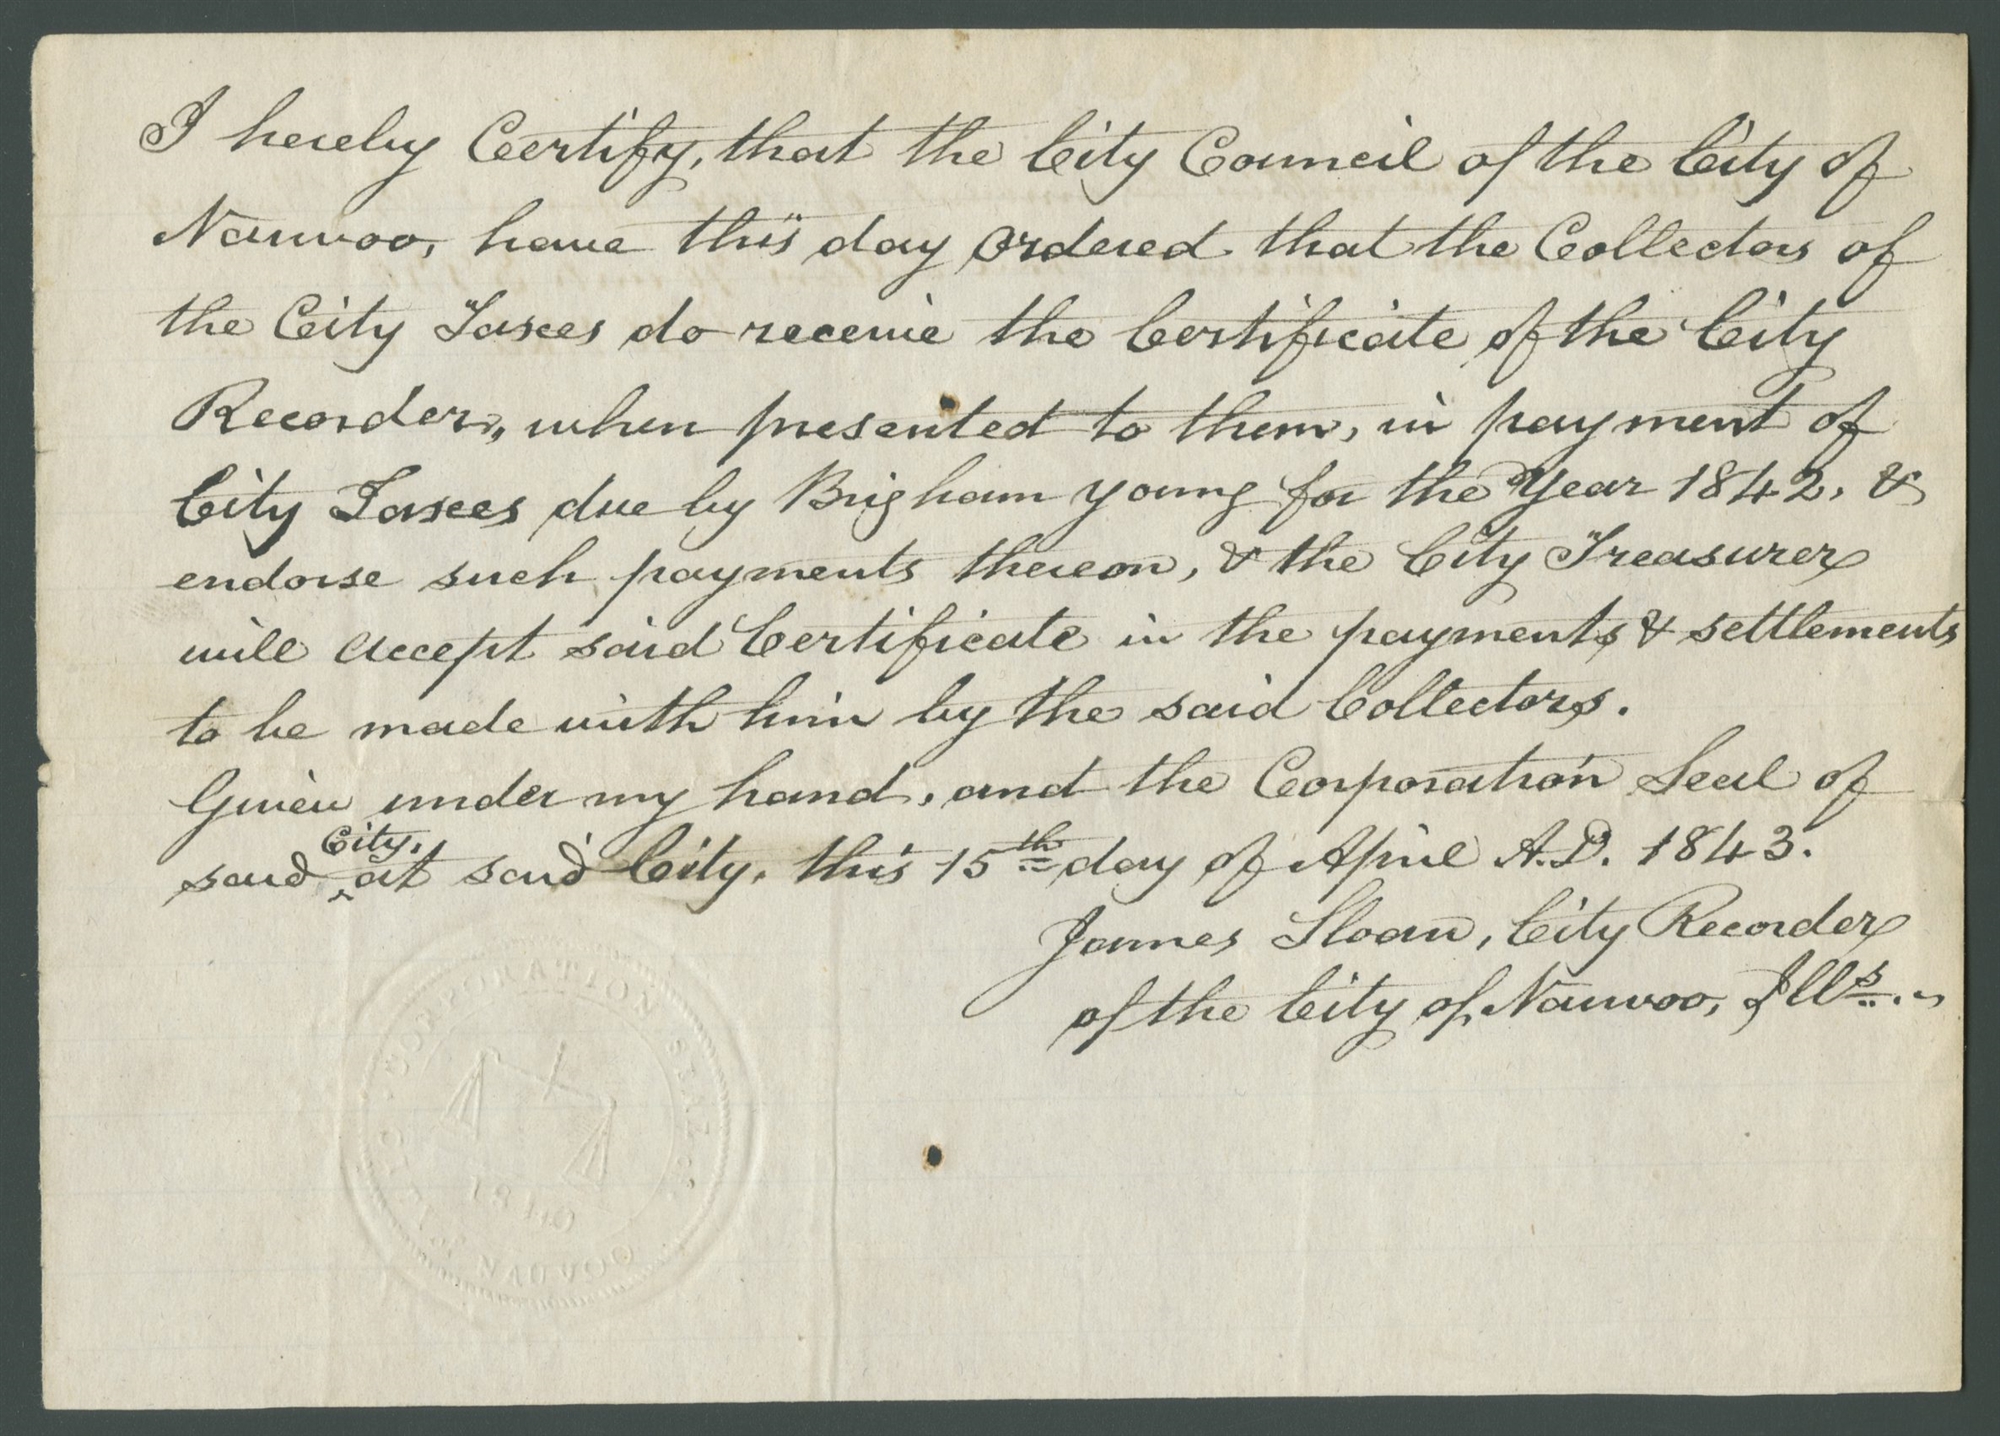 I hereby Certify, that the City Council of the City of
Nauvoo, have this day Ordered that the Collectors of
the City Taxes do receive the Certificate of the City
Recorder, when presented to them, in payment of
City Taxes due by Brigham Young for the Year 1842, &
endorse such payments thereon, & the City Treasurer
will accept said Certificate in the payments & settlements
to be made with him by the said Collectors.
Given under my hand, and the Corporation Seal of
said City, at said City, this 15th day of April A.D. 1843.
James Sloan, City Recorder
of the City of Nauvoo, Ills.
CORPORATION SEAL
1840
CITY OF NAUVOO